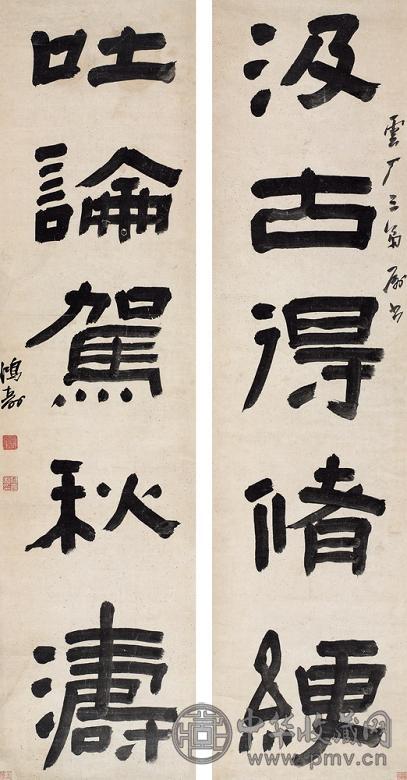 雲厂三弟屬書
汲古得脩綆
吐論駕秋濤
鴻壽
中华收藏网
www.pmv.cn